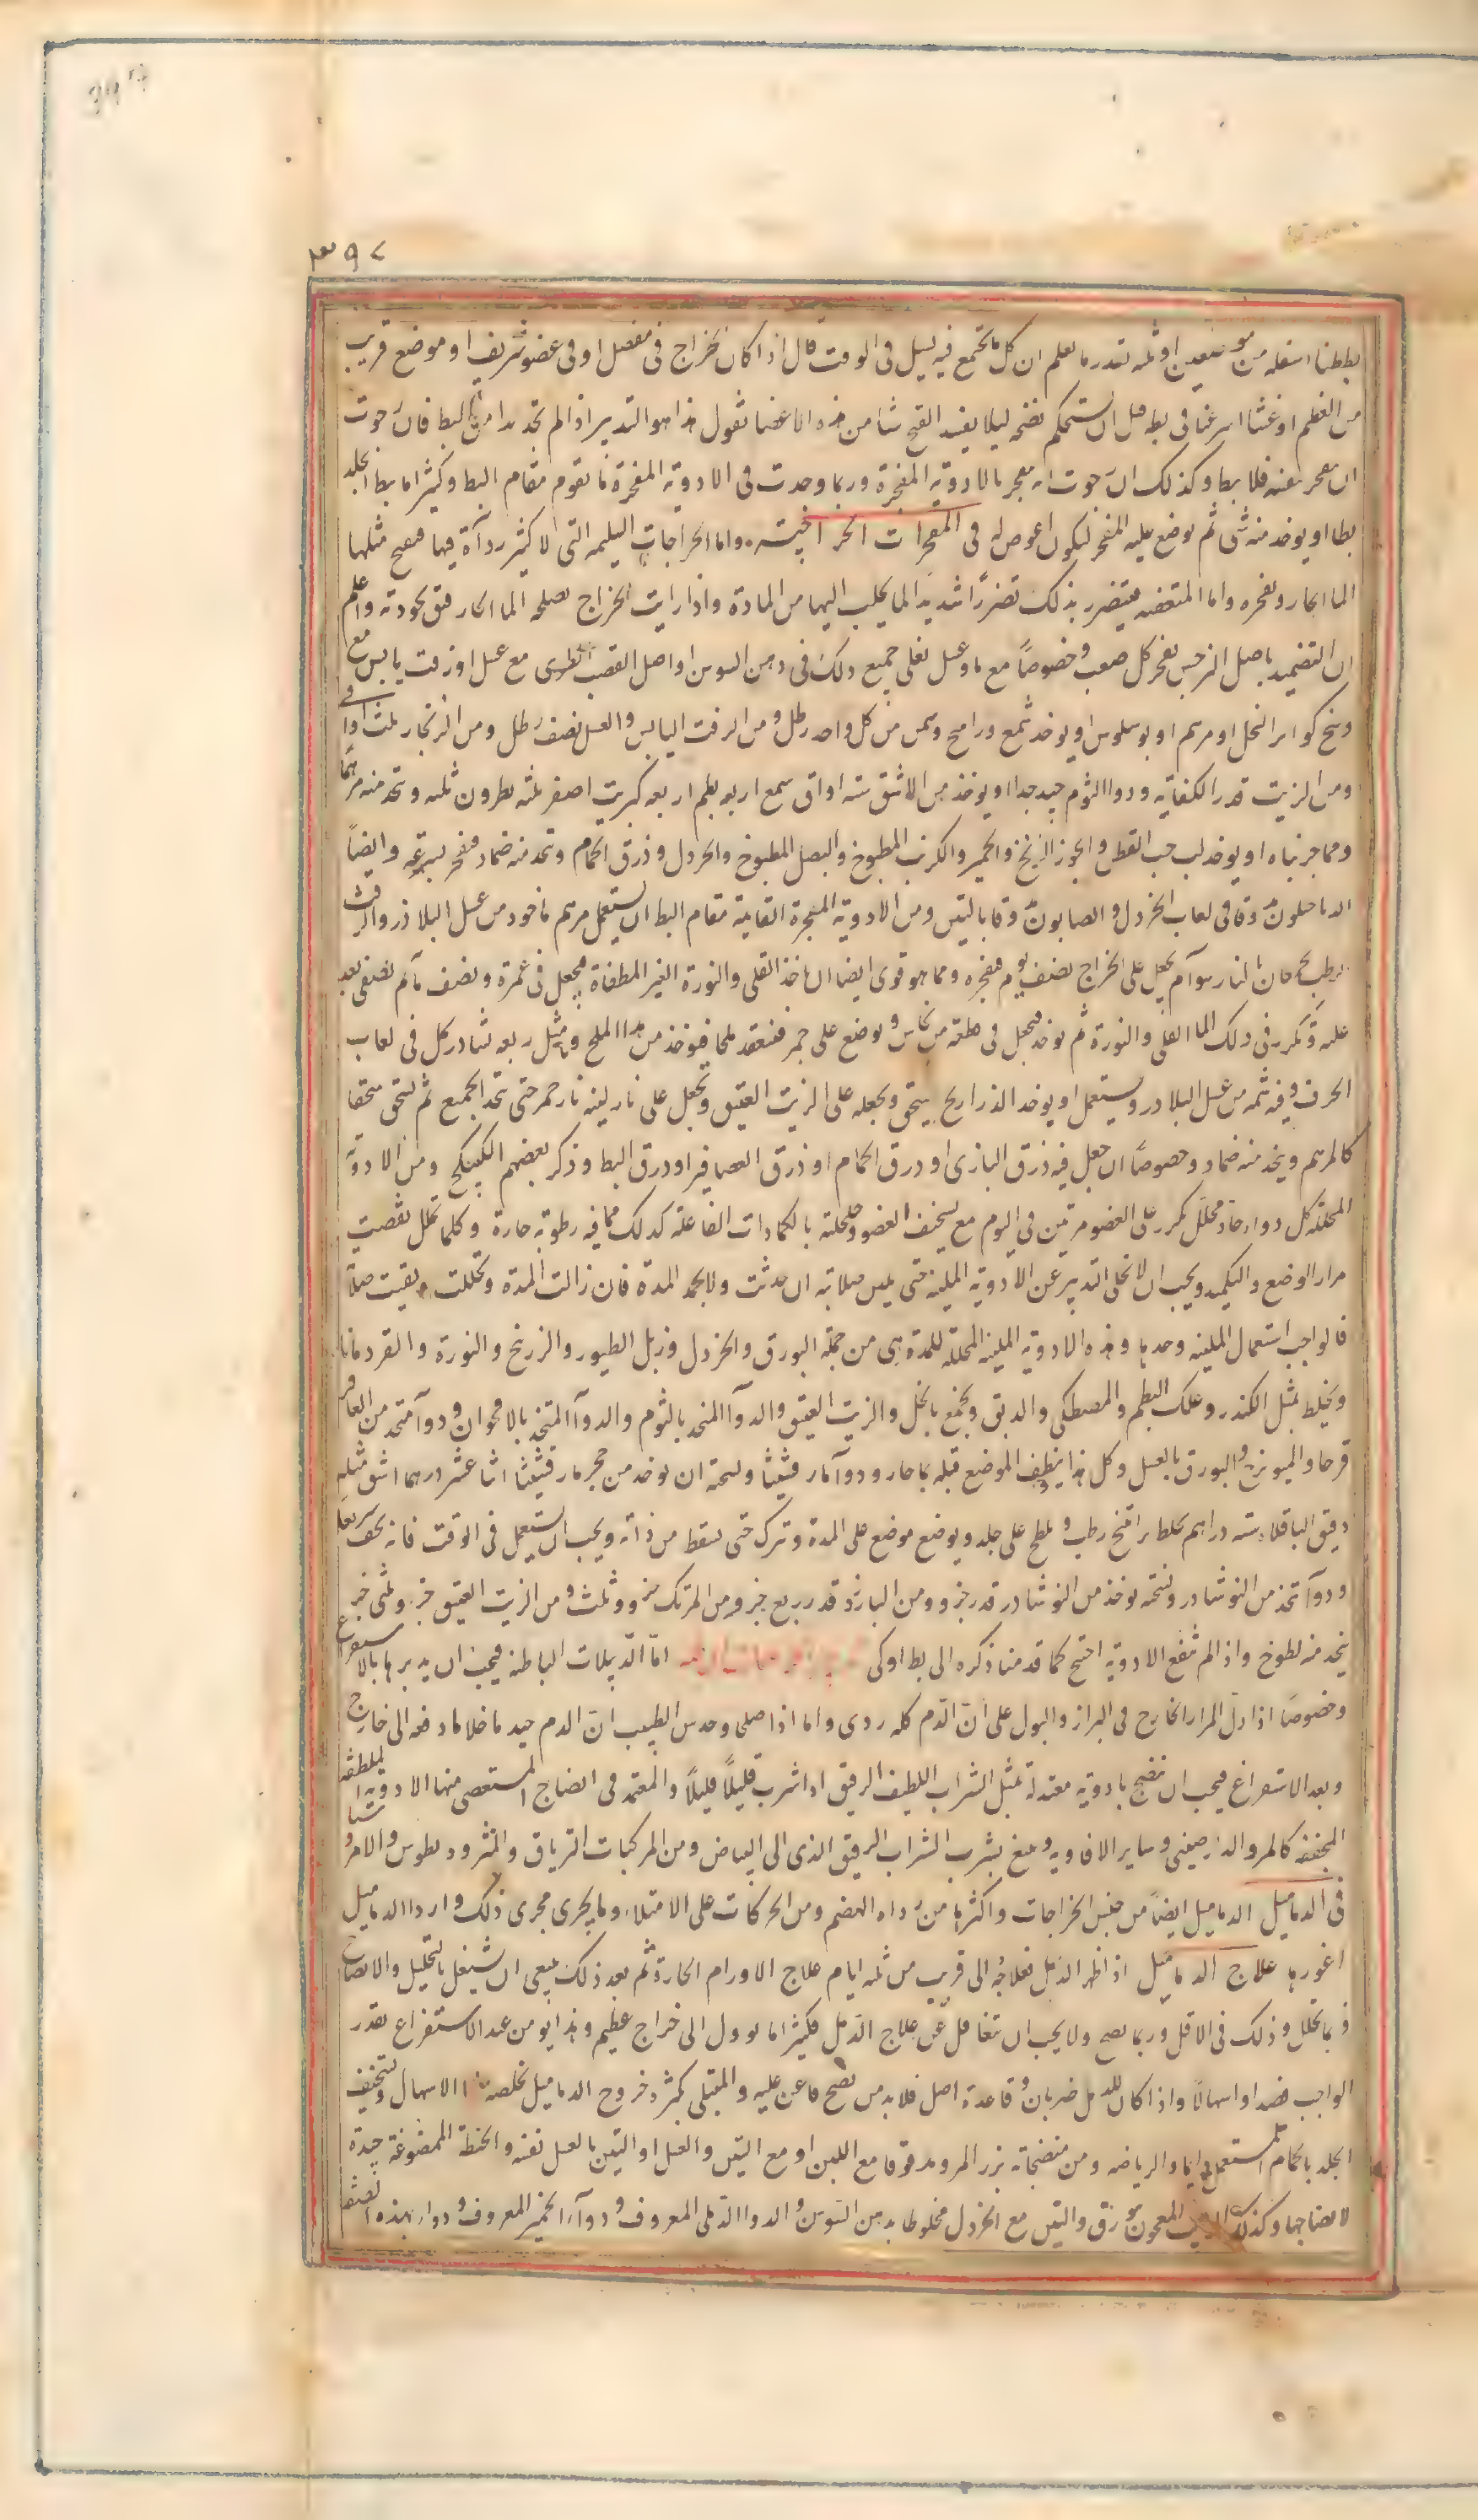 ۳۹۷
بططنا اسفله من موضعين او ثلثه تقدر ما يعلم ان كل ما يجتمع فيه يسيل فى الوقت قال اذا كان الخراج فى مفصل او فى عضو شريف او موضع قريب
من العظم او غشا اسرعنا فى بطه قبل ان يستحكم نضجه ليلا يفسد القيح شيا من هذه الاعضا نقول هذا هو التدبير اذا لم تجد بدا من البط فان رجوت
ان ينفجر بنفسه فلا يبط وكذلك ان رجوت انه ينفجر بالادوية المفجرة وربما وجدت فى الادوية المفجرة ما يقوم مقام البط وكثيرا ما يبط الجلد
بطا او يوخد منه شى ثم يوضع عليه المفجر ليكون اغوص له فى المفجرات الخراجيه واما الخراجات السليمه التى لا كثير رداءة فيها فينضج مثلها
الما الحار ويفجره واما المتعفنه فيتضرر بذلك تضررًا شديدا لما يجلب اليها من المادة واذا رايت الخراج يصلحه الما الحار فثق بجودته واعلم
ان التضميد باصل النرجس يفجر كل صعب وخصوصًا مع ماء وعسل يغلى جميع ذلك فى دهن السوسن او اصل القصب الطرى مع عسل او زفت يابس مع
وسخ كواير النحل او مرهم او بوسلوس او يوخذ شمع وراتنج وسمن من كل واحد رطل ومن الزفت اليابس والعسل نصف رطل ومن الزنجار ثلث اواقى
ومن الزيت قدر الكفاية ودوا الثوم جيد جدا او يوخذ من الاشق سته اواق شمع اربعه بطم اربعه كبريت اصفر ثلثه نطرون ثلثه ويتخذ منه مرهمًا
ومما جربناه او يوخذ لب حب القطن والجوز الزنخ والخمير والكرنب المطبوخ والبصل المطبوخ والخردل وذرق الحمام ويتخذ منه ضماد فيفجر بسرعة وايضًا
الدياخيلون وقاقى لعاب الخردل والصابون وقا بالتين ومن الادوية المفجرة القايمة مقام البط ان يستعمل مرهم ماخوذ من عسل البلاذر والزفت
الرطب يجمعان بالنار سواء ثم يجعل على الخراج نصف يوم فيفجره ومما هو قوى ايضا ان ياخذ القلى والنورة الغير المطفاة فيجعل فى غمرة ونصف ماء ثم يصفى بعد
عليه ويكرر فى ذلك الما القلى والنورة ثم يوخذ فيجعل فى طغه من نحاس ويوضع على جمر فينعقد ملحا فيوخذ من هذا الملح ومثل ربعه نشادر كل فى لعاب
الحرف وفيه ثمنه من عسل البلاذر ويستعمل او يوخذ الذراريح يسحق ويجعله على الزيت العتيق ويجعل على نار لينه نار جمر حتى يتحد الجميع ثم يسحق سحقا
كالمرهم ويتخذ منه ضماد وخصوصًا ان جعل فيه ذرق البازى او درق الحمام او ذرق العصافير او درق البط وذكر بعضهم الكبيكج ومن الادوية
المحللة كل دواء حاد محلل يكرر على العضو مرتين فى اليوم مع تسخيف العضو وخلخلته بالكمادات الفاعلة كذلك مما فيه رطوبة حارة وكلما تحلل نقصت
مرار الوضع والتكميد ويجب ان لا يخلى التدبير عن الادوية الملينه حتى يلين صلابته ان حدثت ولا يجمد المدة فان زالت المدة وتحللت وبقيت صلابة
فالواجب استعمال الملينه وحدها وهذه الادوية الملينه المحللة للمدة هى من جملة البورق والخردل وزبل الطيور والزرنيخ والنورة والقردمانا
ويخلط بمثل الكندر وعلك البطم والمصطكى والدبق ويجمع بالخل والزيت العتيق والدواء المتخذ بالثوم والدواء المتخذ بالاقحوان ودواء متخذ من العاقر
قرحا والميويزج والبورق بالعسل وكل هذا ينظف الموضع قبله بماء حار ودواء مارقشيثا ونسخته ان يوخذ من حجر مارقشيثا اثنا عشر درهما اشق مثله
دقيق الباقلاء سته دراهم يخلط براتنج رطب ويلطخ على جلد ويوضع موضع على المدة ويترك حتى يسقط من ذاته ويجب ان يستعمل فى الوقت فانه يجف سريعا
ودواء تتخذ من النوشادر ونسخته يوخذ من النوشادر قدر جزء ومن البارزد قدر ربع جزء ومن المرتك جزء وثلث ومن الزيت العتيق جزء وثلثى جزء
يتخذ منه لطوخ واذا لم تنفع الادوية احتيج كما قد منا ذكره الى بط او كى اما الدبيلات الباطنه فيجب ان يدبرها بالاستفراغ
وخصوصًا اذا دل المرار الخارج فى البراز والبول على ان الدم كله ردى واما اذا صلى وحدس الطبيب ان الدم جيد ما خلا ما دفعه الى خارج
وبعد الاستفراغ فيجب ان ينضج بادوية معتدلة بمثل الشراب اللطيف الرقيق اذا شرب قليلًا قليلًا والمعتمد فى انضاج المستعصى منها الادوية الملطفه
المجففه كالمر والدارصينى وساير الافاويه وينفع بشرب الشراب الرقيق الذى الى البياض ومن المركبات الترياق والمثروديطوس والامروسيا
فى الدماميل الدماميل ايضًا من جنس الخراجات واكثرها من رداه الهضم ومن الحركات على الامتلاء وما يجرى مجرى ذلك واردا الدماميل
اغورها علاج الدماميل اذا ظهر الدمل فعلاجه الى قريب من ثلثه ايام علاج الاورام الحارة ثم بعد ذلك ينبغى ان يشتغل بالتحليل والانضاج
فربما تحلل وذلك فى الاقل وربما نضج ولا يجب ان تغافل عن علاج الدمل فكثيرا ما يوول الى خراج عظيم وهذا يومن عنه الاستفراغ بقدر
الواجب فصدا او اسهالًا واذا كان للدمل ضربان وقاعدة اصل فلا بد من نضج ما عن عليه والمبتلى بكثرة خروج الدماميل يخلصه منها الاسهال وتسخيف
الجلد بالحمام المستعمل دايما والرياضه ومن منضجاته بزر المرو مدقوقا مع اللبن او مع التين والعسل او التين بالعسل نفسه والحنطة الممضوغة جيدة
لانضاجها وكذلك الزبيب المعجون ببورق والتين مع الخردل مخلوطا بدهن السوسن والدوا الدملى المعروف ودواء الخمير المعروف ودواء بهذه الصفه